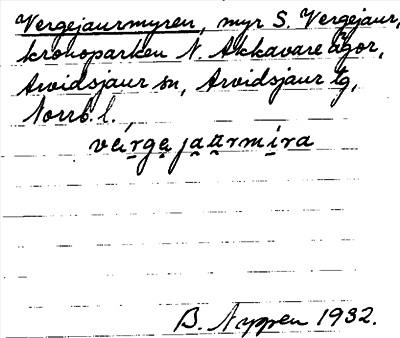 Vergejaurmyren, myr S. Vergejaur,
kronoparken N. Akkavare ägor,
Arvidsjaur sn, Arvidsjaur tg,
Norrb. l.,
B. Nyppen 1932.